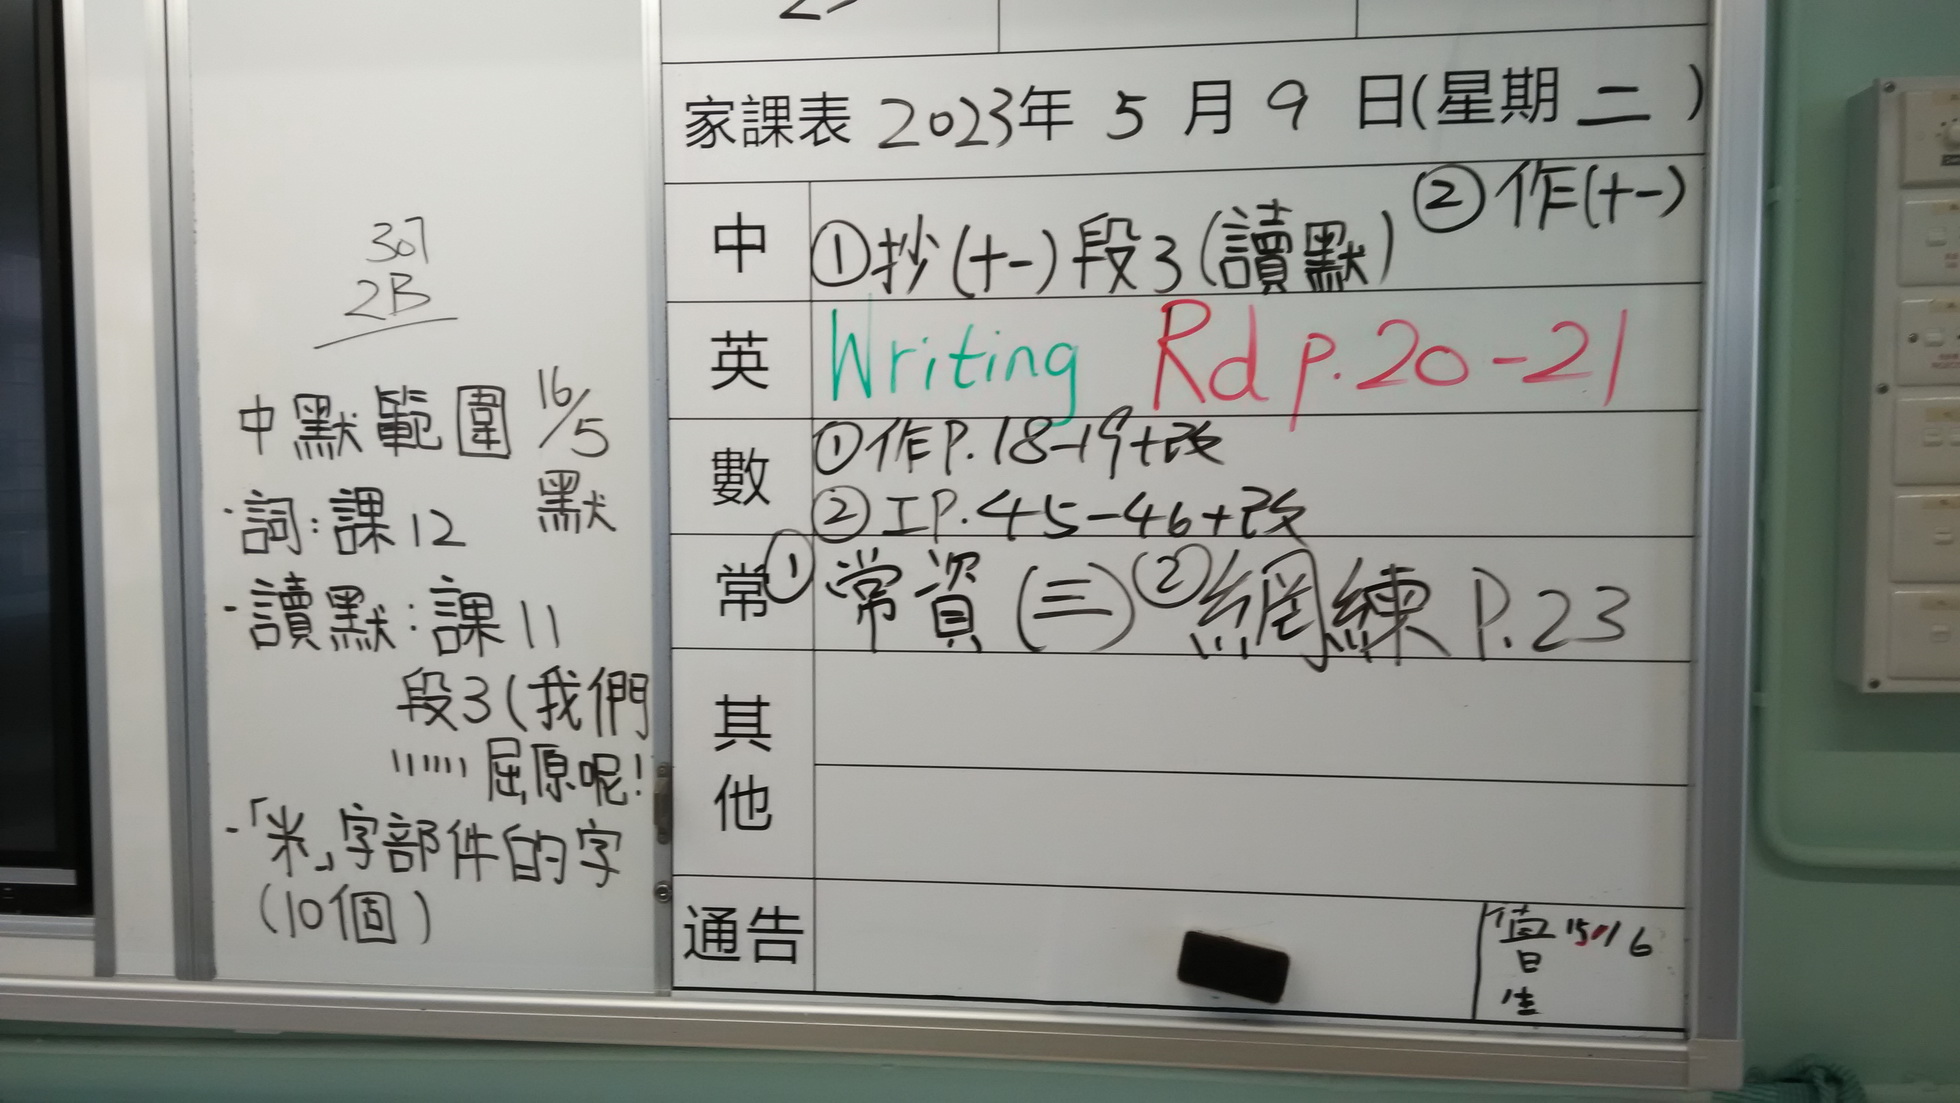 307
2B
中默範圍 16/5
默
·詞:課12
·讀默:課11
段3(我們
……屈原呢!
·「米」字部件的字
(10個)
家課表 2023年 5 月 9 日(星期 二 )
中 ①抄(十一)段3(讀默) ②作(十一)
英 Writing Rd p.20-21
數 ①作P.18-19+改
②IP.45-46+改
常 ①常資(三) ②網練 P.23
其他
通告
值日生 15/16